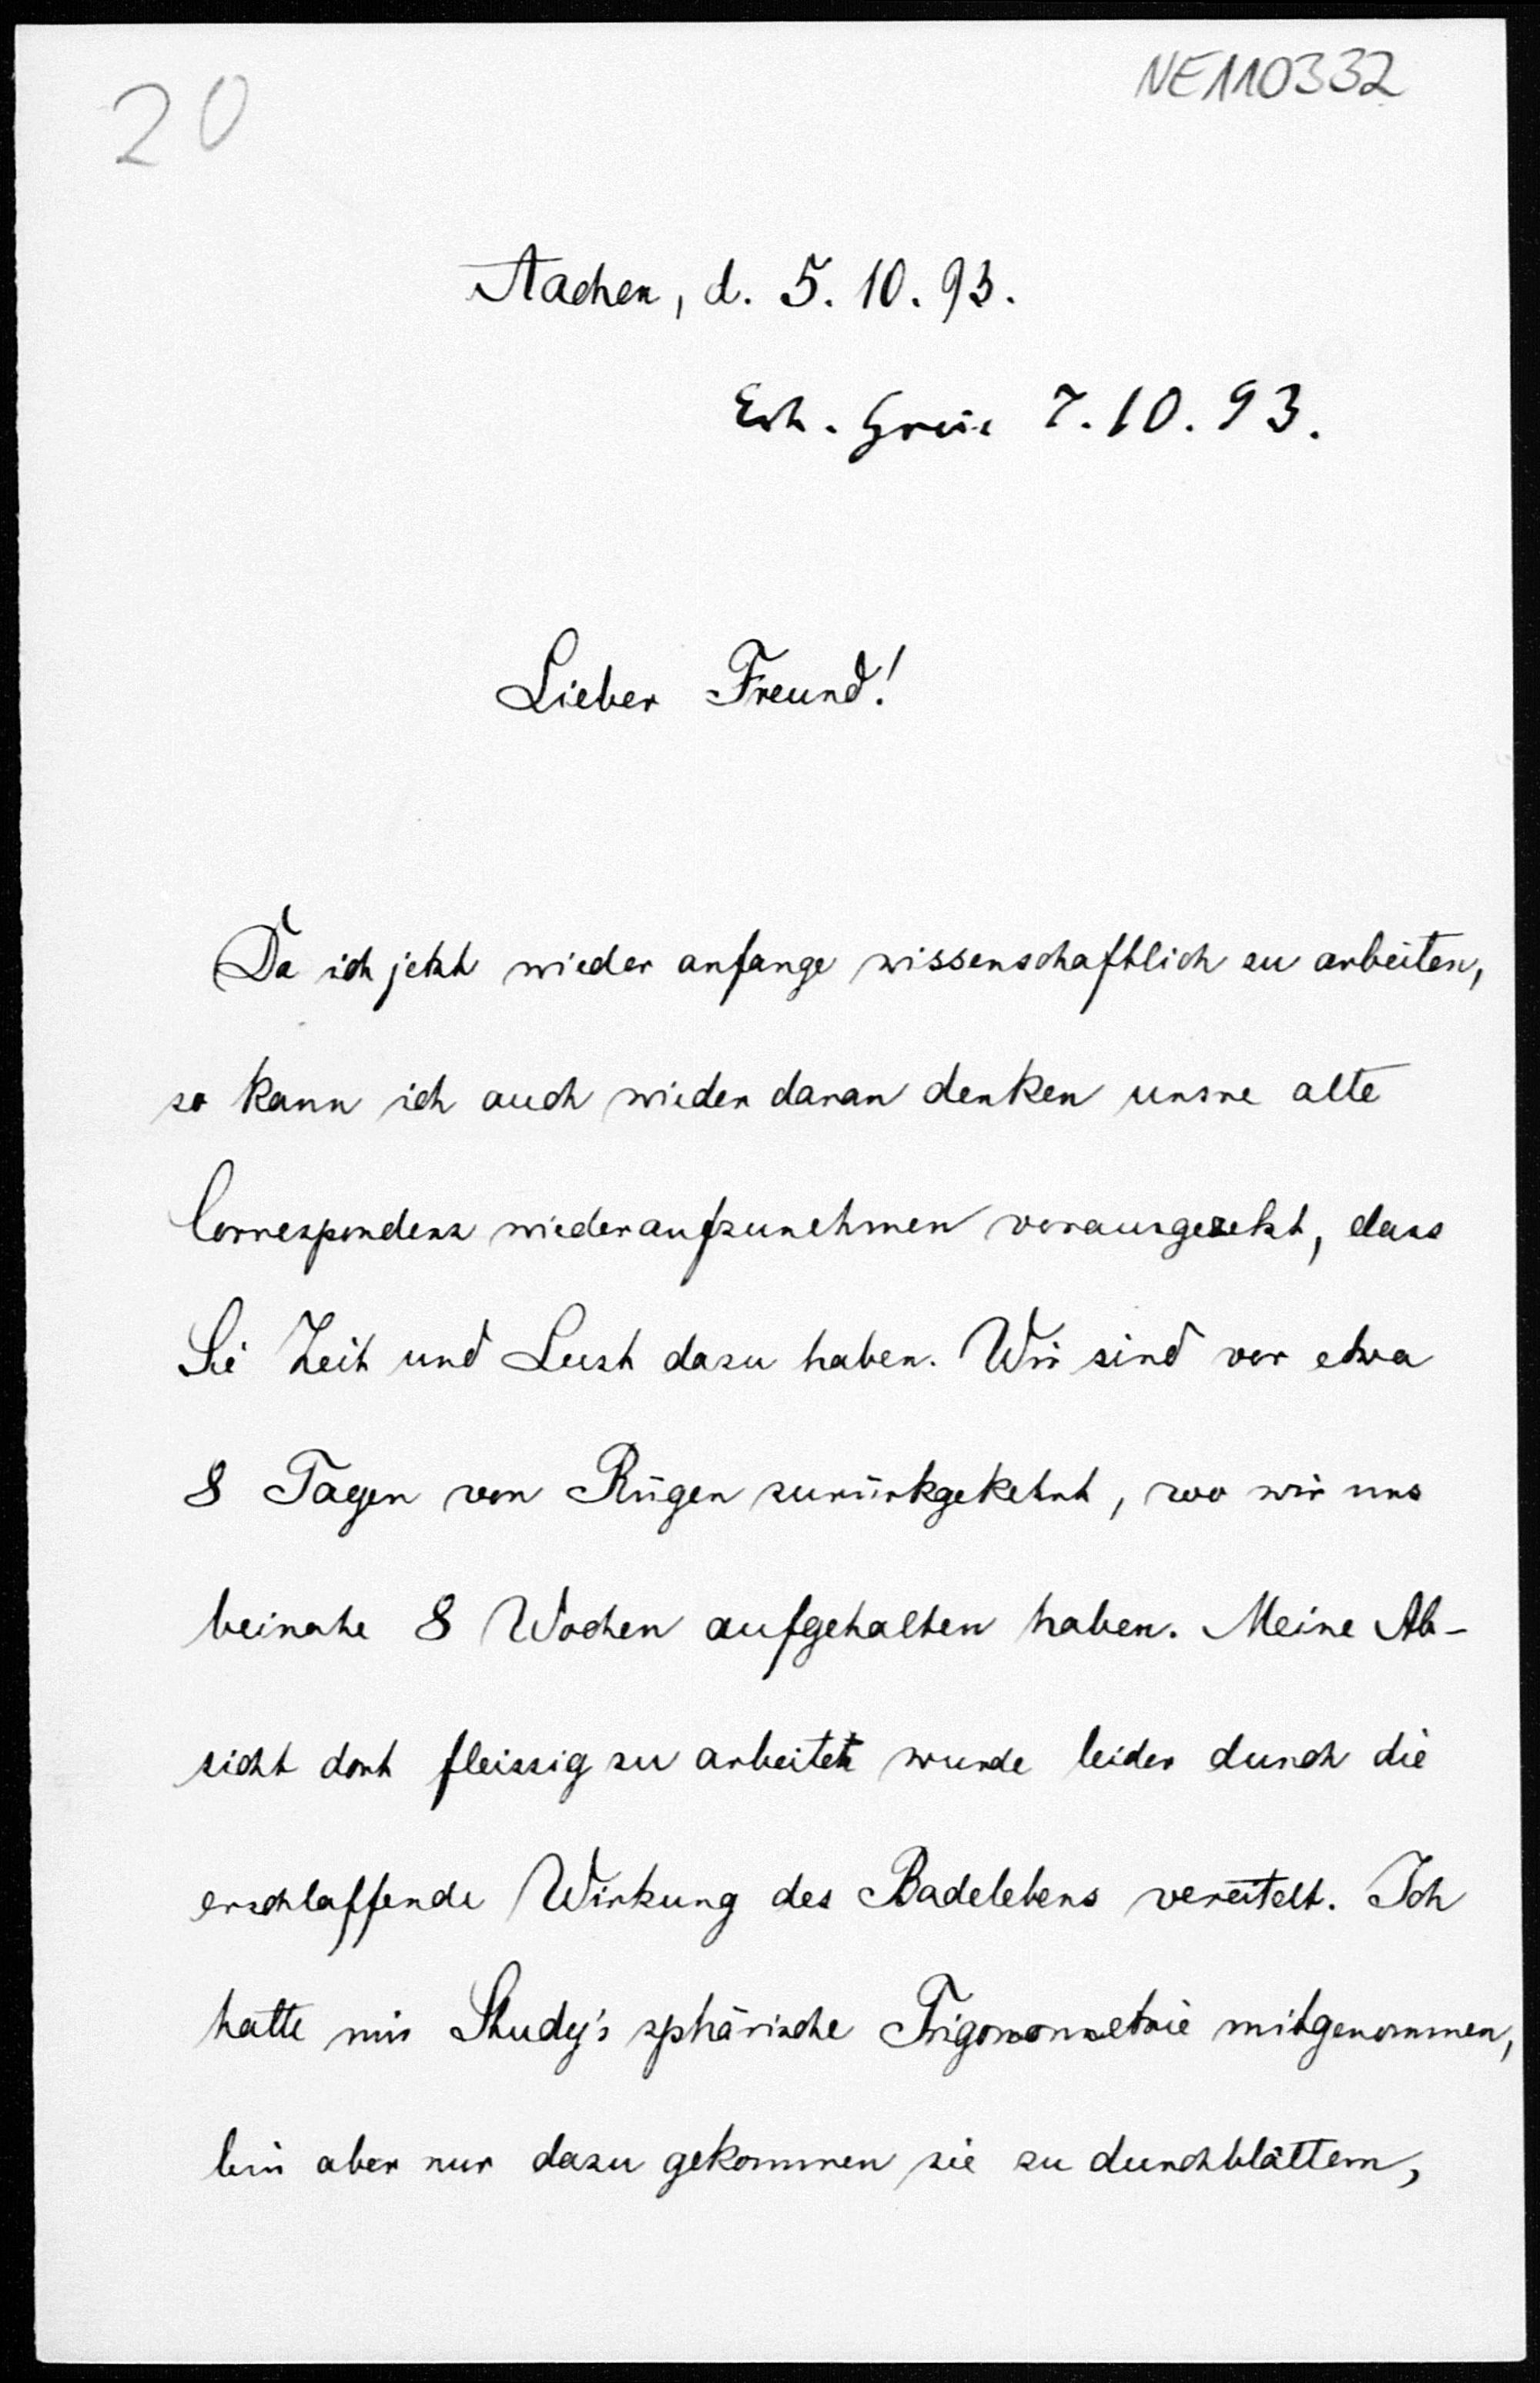 20
NE110332
Aachen, d. 5. 10. 93.
Erh. 7. 10. 93.
Lieber Freund!
Da ich jetzt wieder anfange wissenschaftlich zu arbeiten,
so kann ich auch wieder daran denken unsre alte
Correspondenz wiederaufzunehmen vorausgesetzt, dass
Sie Zeit und Lust dazu haben. Wir sind vor etwa
8 Tagen von Rügen zurückgekehrt, wo wir uns
beinahe 8 Wochen aufgehalten haben. Meine Ab-
sicht dort fleissig zu arbeiten wurde leider durch die
erschlaffende Wirkung des Badelebens vereitelt. Ich
hatte mir Study's sphärische Trigonometrie mitgenommen,
bin aber nur dazu gekommen sie zu durchblättern,